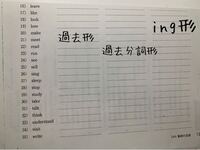 16) leave
17) like
18) look
19) love
20) make
21) meet
22) read
23) run
24) see
25) sell
26) sing
27) sleep
28) stop
29) study
30) take
31) talk
32) think
33) understand
34) visit
35) write
ing形
過去形
過去分詞形